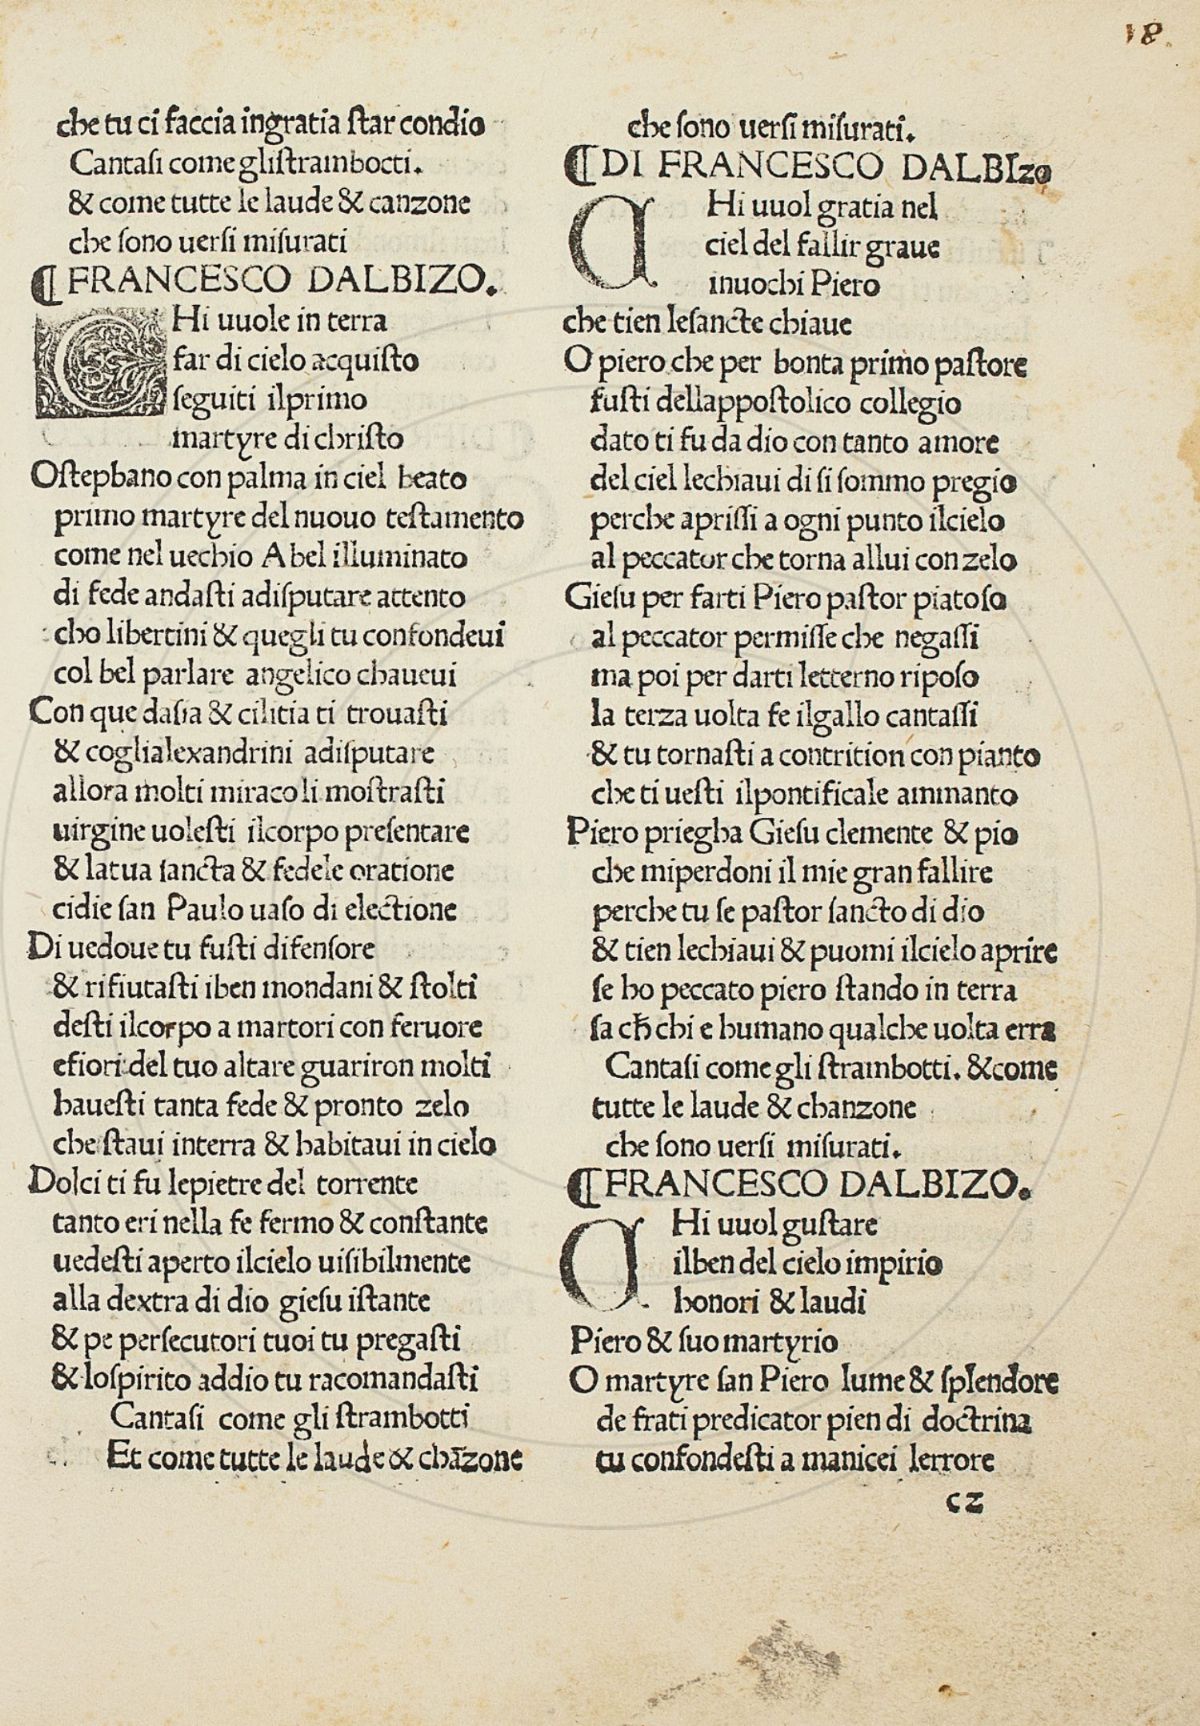 18.
che tu ci faccia ingratia star condio
Cantasi come glistrambotti.
& come tutte le laude & canzone
che sono uersi misurati
¶ FRANCESCO DALBIZO.
CHi uuole in terra
far di cielo acquisto
seguiti ilprimo
martyre di christo
Ostephano con palma in ciel beato
primo martyre del nuouo testamento
come nel uechio Abel illuminato
di fede andasti adisputare attento
cho libertini & quegli tu confondeui
col bel parlare angelico chaueui
Con que dasia & cilitia ti trouasti
& coglialexandrini adisputare
allora molti miracoli mostrasti
uirgine uolesti ilcorpo presentare
& latua sancta & fedele oratione
cidie san Paulo uaso di electione
Di uedoue tu fusti difensore
& rifiutasti iben mondani & stolti
desti ilcorpo a martori con feruore
efiori del tuo altare guariron molti
hauesti tanta fede & pronto zelo
che staui interra & habitaui in cielo
Dolci ti fu lepietre del torrente
tanto eri nella fe fermo & constante
uedesti aperto ilcielo uisibilmente
alla dextra di dio giesu istante
& pe persecutori tuoi tu pregasti
& lospirito addio tu racomandasti
Cantasi come gli strambotti
Et come tutte le laude & chāzone
che sono uersi misurati.
¶ DI FRANCESCO DALBIzo
CHi uuol gratia nel
ciel del fallir graue
inuochi Piero
che tien lesancte chiaue
O piero che per bonta primo pastore
fusti dellappostolico collegio
dato ti fu da dio con tanto amore
del ciel lechiaui di si sommo pregio
perche aprissi a ogni punto ilcielo
al peccator che torna allui con zelo
Giesu per farti Piero pastor piatoso
al peccator permisse che negassi
ma poi per darti letterno riposo
la terza uolta fe ilgallo cantassi
& tu tornasti a contrition con pianto
che ti uesti ilpontificale ammanto
Piero priegha Giesu clemente & pio
che miperdoni il mie gran fallire
perche tu se pastor sancto di dio
& tien lechiaui & puomi ilcielo aprire
se ho peccato piero stando in terra
sa cħ chi e humano qualche uolta erra
Cantasi come gli strambotti. &come
tutte le laude & chanzone
che sono uersi misurati.
¶ FRANCESCO DALBIZO.
CHi uuol gustare
ilben del cielo impirio
honori & laudi
Piero & suo martyrio
O martyre san Piero lume & splendore
de frati predicator pien di doctrina
tu confondesti a manicei lerrore
c2